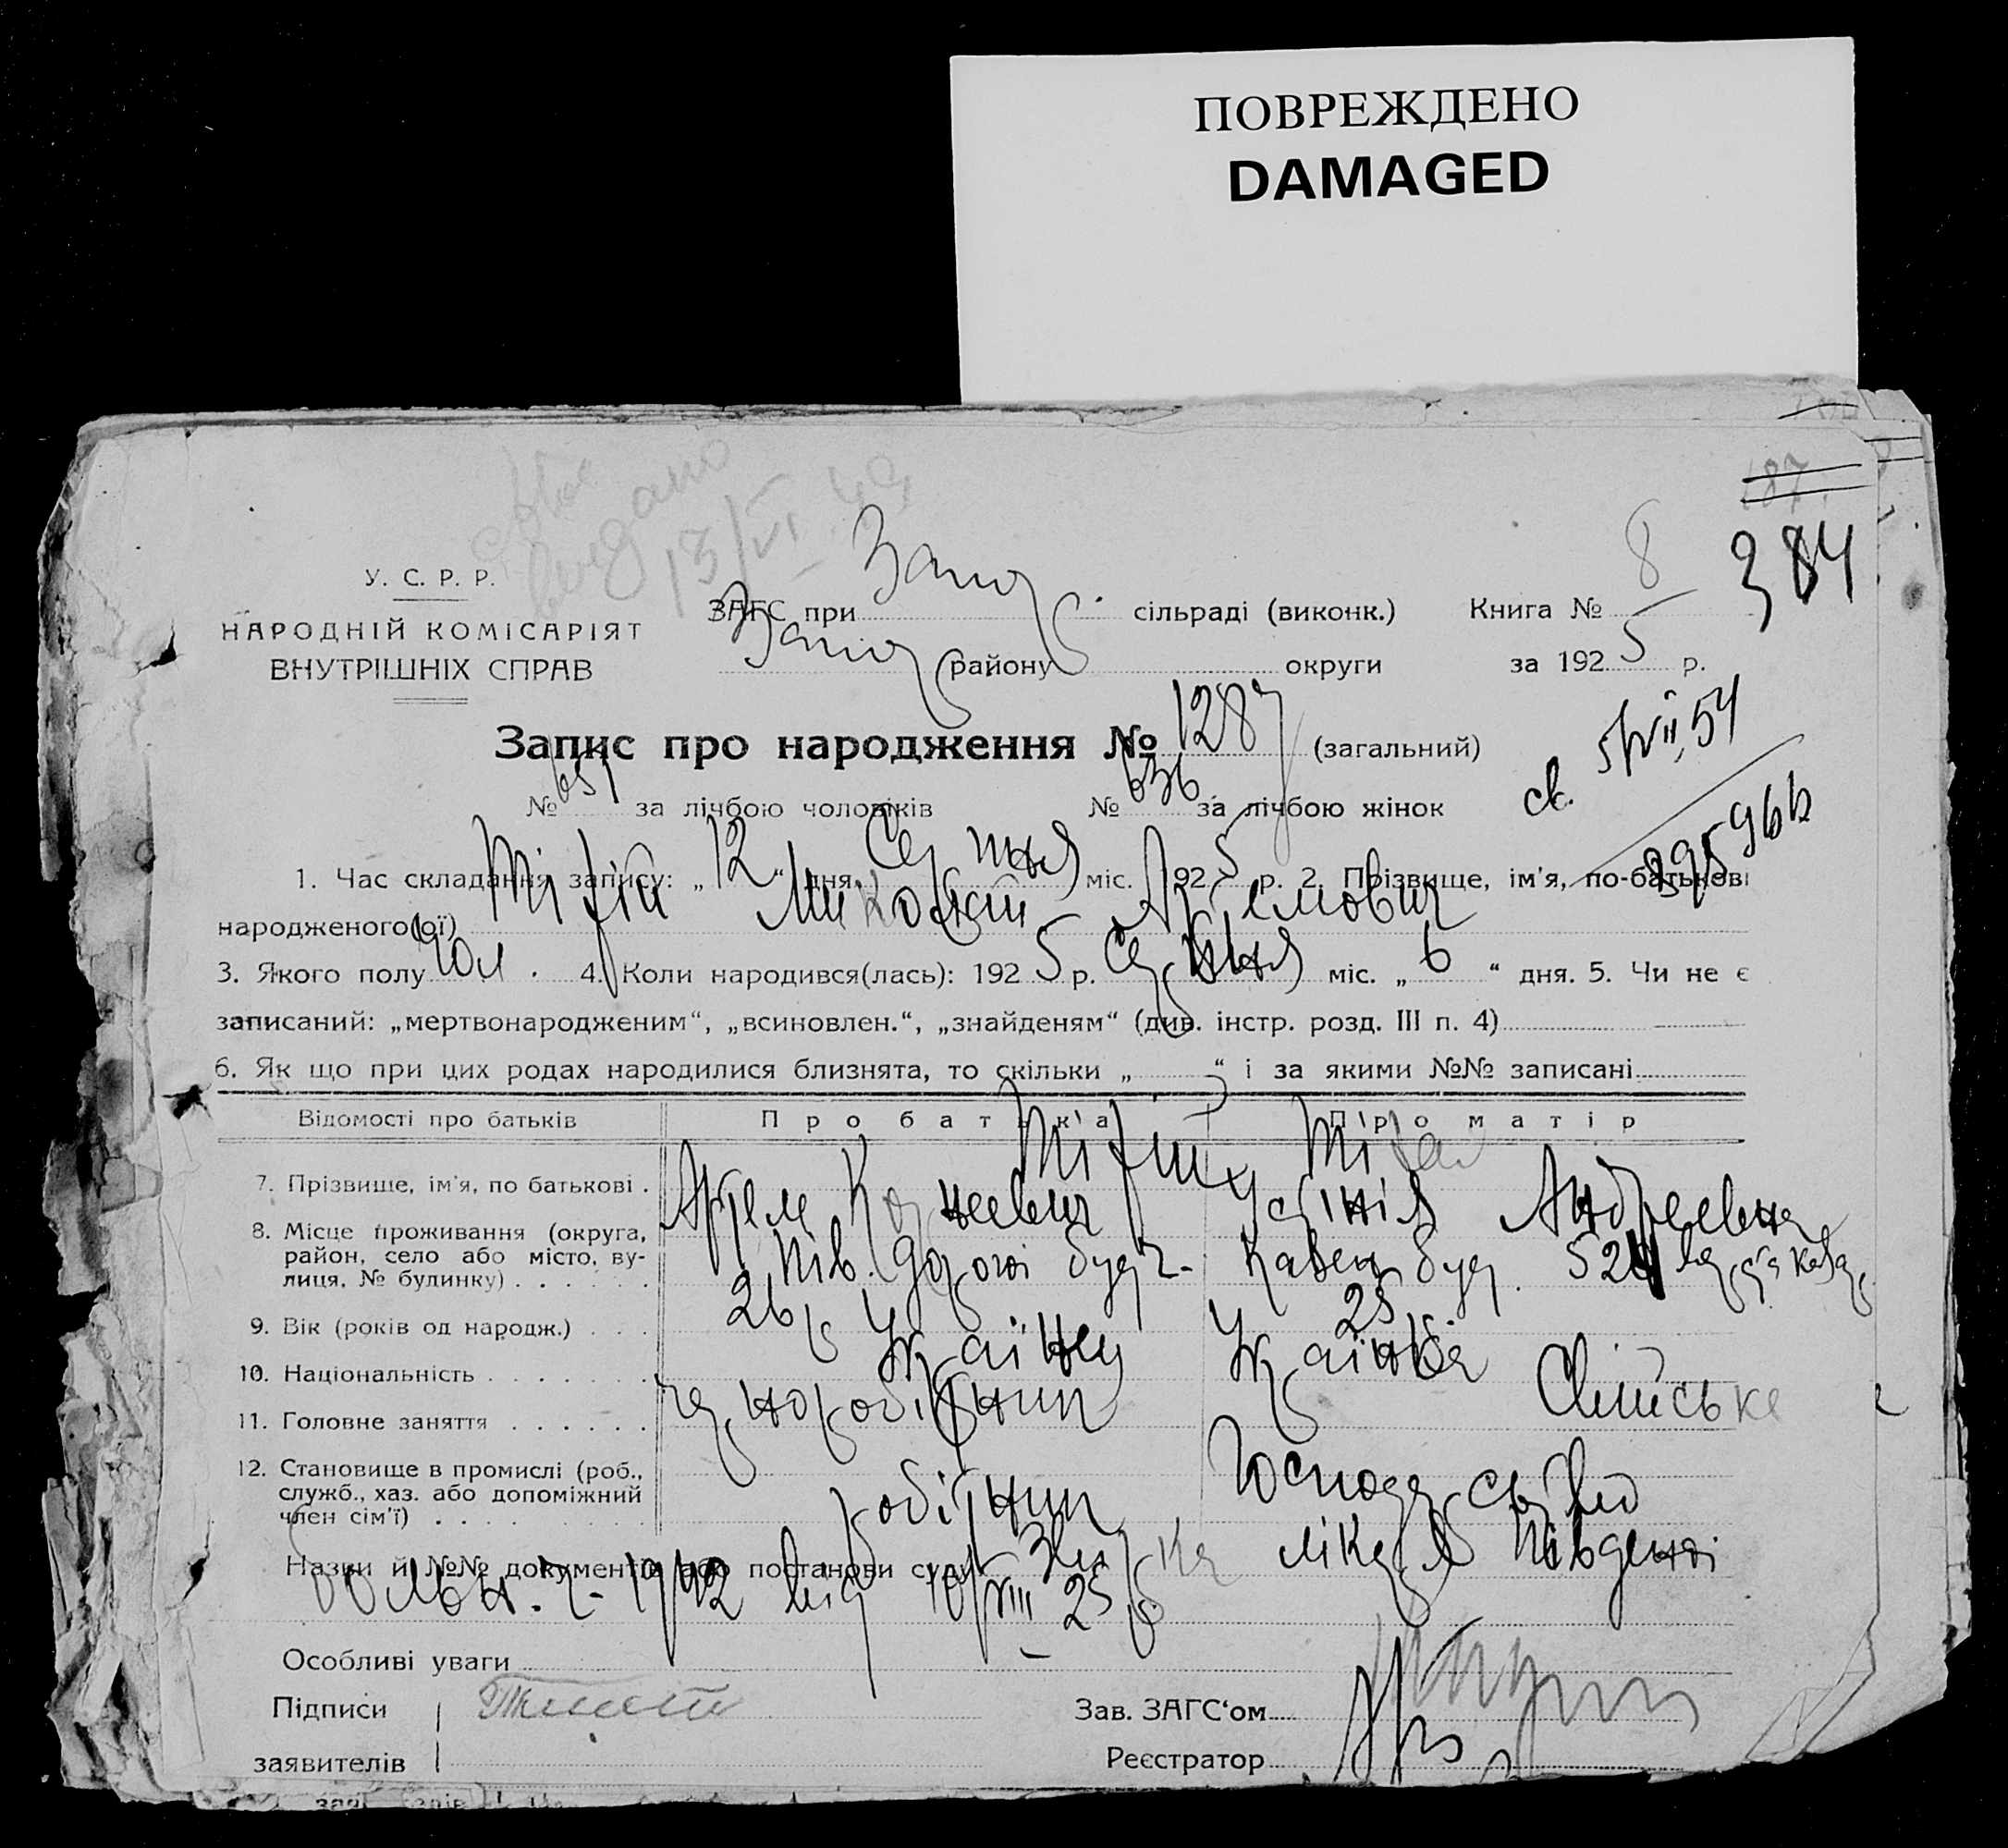 ПОВРЕЖДЕНО
DAMAGED
187.
384
У. С. Р. Р.
НАРОДНІЙ КОМІСАРІЯТ
ВНУТРІШНІХ СПРАВ
13/VI
ЗАГС при Запор сільраді (виконк.) Книга № 8
Запор району округи за 1925 р.
Запис про народження № 1287 (загальний)
№ 651 за лічбою чоловіків № 636 за лічбою жінок
св. 5/VII, 54
1. Час складання запису: „12“ дня Серпня міс. 1925 р. 2. Прізвище, ім'я, по-батькові
народженого(ої) Миколай Артемович
3. Якого полу чол. 4. Коли народився(лась): 1925 р. Серпня міс. „6“ дня. 5. Чи не є
записаний: „мертвонародженим“, „всиновлен.“, „знайденям“ (див. інстр. розд. III п. 4)
6. Як що при цих родах народилися близнята, то скільки „ “ і за якими №№ записані
Відомості про батьків Про батька Про матір
7. Прізвище, ім'я, по батькові . Артем Корнеевич Устінія Андреевна
8. Місце проживання (округа,
район, село або місто, ву-
лиця, № будинку) . . . . . . Півд. дороги буд
9. Вік (років од народж.) . . . 26 р 25
10. Національність . . . . . . . Українец Українка
11. Головне заняття . . . . . . чорноробітник Сілійське
12. Становище в промислі (роб.,
служб., хаз. або допоміжний
член сім'ї) . . . . . . . . . робітник Господарство
Назви й №№ документів або постанови суду лікаря Південної
від 10/VIII 25 р
Особливі уваги
Підписи
заявителів
Зав. ЗАГС‘ом
Реєстратор